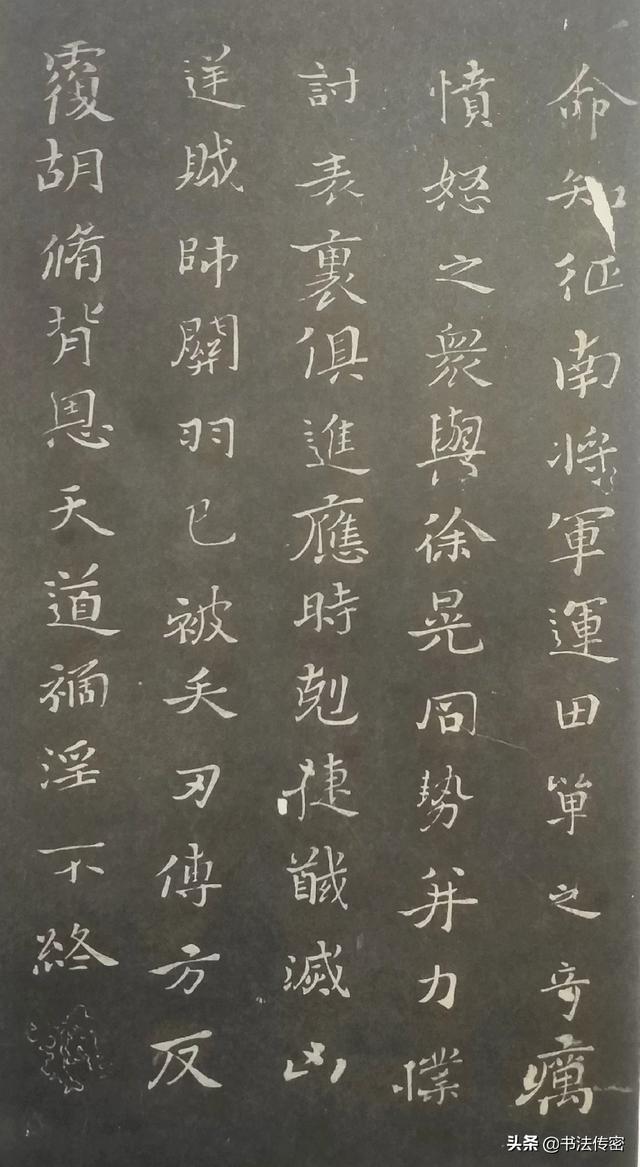 命知征南將軍運田單之奇厲
憤怒之衆與徐晃同勢并力撲
討表裏俱進應時剋捷馘滅凶
逆賊帥關羽已被矢刃傅方反
覆胡脩背恩天道禍淫不終
头条 @书法传密